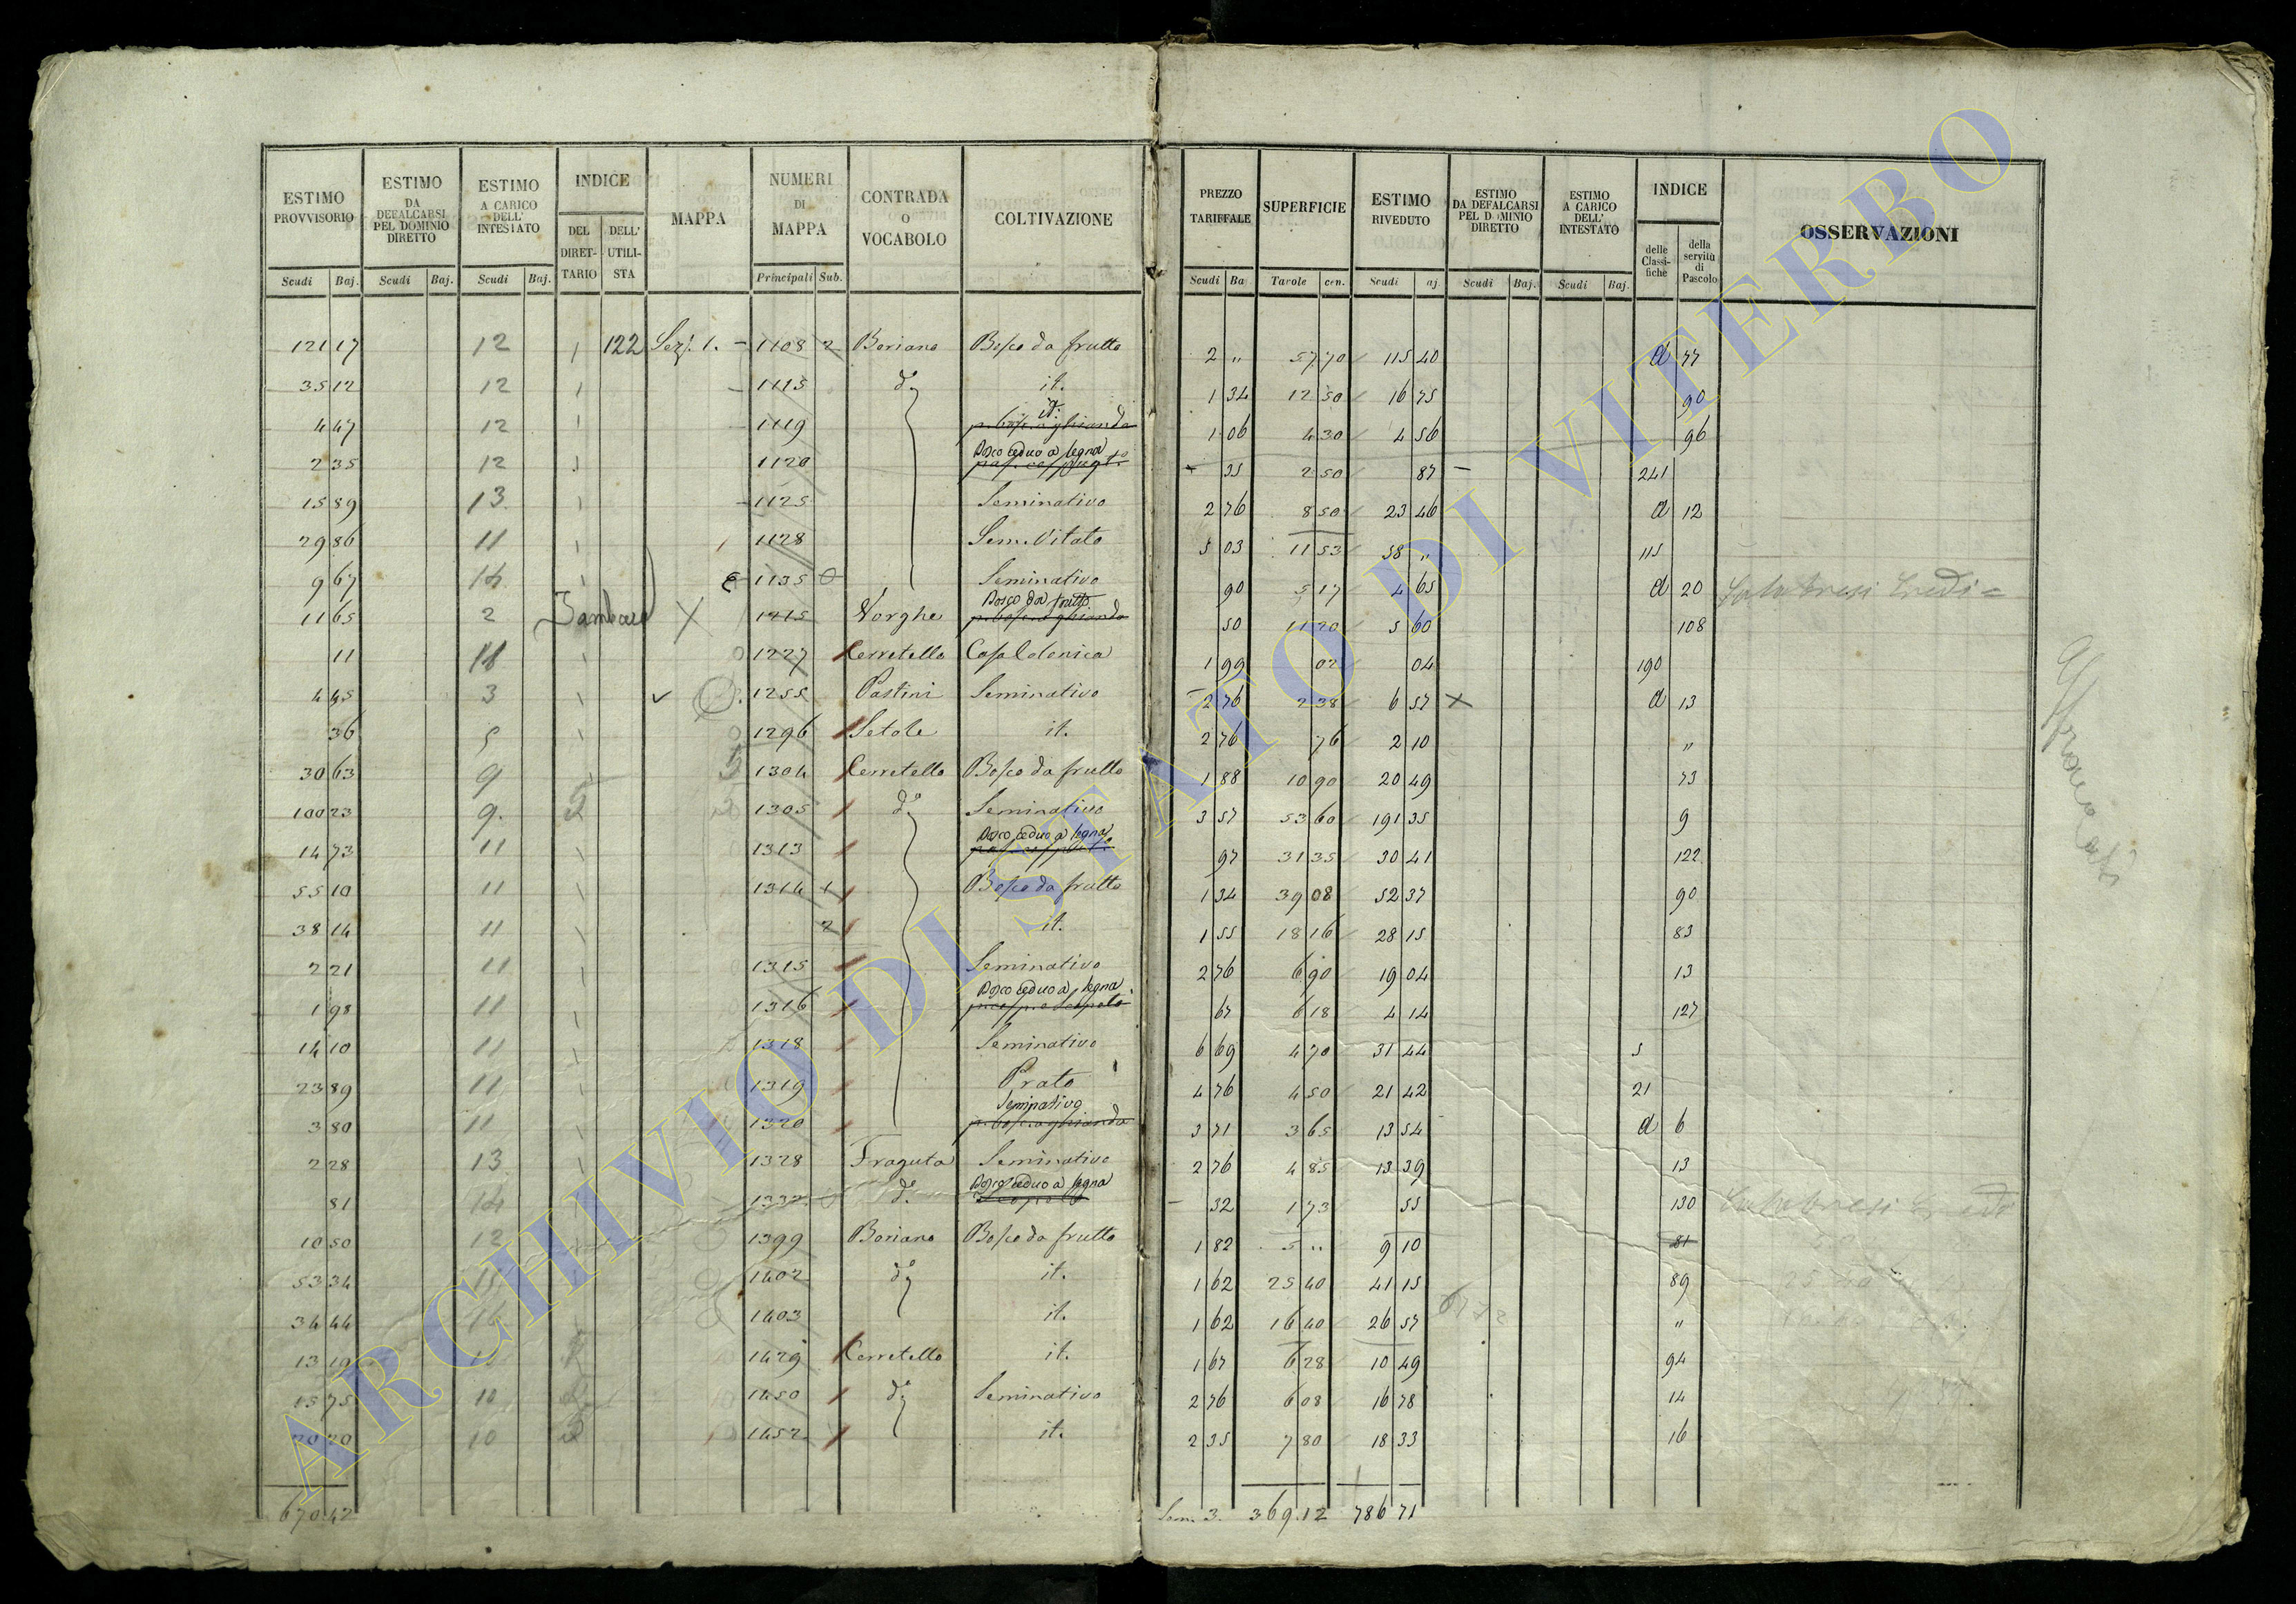 ESTIMO PROVVISORIO | ESTIMO DA DEFALCARSI PEL DOMINIO DIRETTO | ESTIMO A CARICO DELL' INTESTATO | INDICE | MAPPA | NUMERI DI MAPPA | CONTRADA O VOCABOLO | COLTIVAZIONE | PREZZO TARIFFALE | SUPERFICIE | ESTIMO RIVEDUTO | ESTIMO DA DEFALCARSI PEL DOMINIO DIRETTO | ESTIMO A CARICO DELL' INTESTATO | INDICE | OSSERVAZIONI
DEL DIRETTARIO | DELL' UTILISTA | delle Classifiche | della servitù di Pascolo
Scudi | Baj. | Scudi | Baj. | Scudi | Baj. | Principali | Sub. | Scudi | Ba | Tavole | cen. | Scudi | aj. | Scudi | Baj. | Scudi | Baj.
121 17 | 12 | 1 | 122 | Sez. 1. | 1108 | 2 | Boriano | Bosco da frutto | 2 " | 57 70 | 115 40 | d 77
35 12 | 12 | 1 | 1115 | d° | it. | 1 34 | 12 50 | 16 75 | 90
4 47 | 12 | 1 | 1119 | it. | 1 06 | 4 30 | 4 56 | 96
2 35 | 12 | 1 | 1120 | Bosco ceduo a legna | 35 | 2 50 | 87 | 241
15 89 | 13 | 1 | 1125 | Seminativo | 2 76 | 8 50 | 23 46 | d 12
29 86 | 11 | 1 | 1128 | Sem. Vitato | 5 03 | 11 53 | 58 " | 115
9 67 | 14 | 1 | 1135 | Seminativo | 90 | 5 17 | 4 65 | d 20 | Eredi
11 65 | 2 | X | 1215 | Norghe | Bosco da frutto | 50 | 11 20 | 5 60 | 108
11 | 11 | 1 | 1227 | Cerretello | Casa Colonica | 1 99 | 02 | 04 | 190
4 45 | 3 | 1 | 1255 | Pastini | Seminativo | 2 76 | 2 38 | 6 57 | X | d 13
36 | 5 | 1 | 1296 | Setole | it. | 2 76 | 76 | 2 10 | "
30 63 | 9 | 1 | 1304 | Cerretello | Bosco da frutto | 1 88 | 10 90 | 20 49 | 73
100 23 | 9. | 1305 | d° | Seminativo | 3 57 | 53 60 | 191 35 | 9
14 73 | 11 | 1 | 1313 | Bosco ceduo a legna | 97 | 31 35 | 30 41 | 122
55 10 | 11 | 1 | 1314 | 1 | Bosco da frutto | 1 34 | 39 08 | 52 37 | 90
38 14 | 11 | 1 | 2 | it. | 1 55 | 18 16 | 28 15 | 83
2 21 | 11 | 1 | 1315 | Seminativo | 2 76 | 6 90 | 19 04 | 13
1 98 | 11 | 1 | 1316 | Bosco ceduo a legna | 67 | 6 18 | 4 14 | 127
14 10 | 11 | 1 | 1318 | Seminativo | 6 69 | 4 70 | 31 44 | 5
23 89 | 11 | 1 | 1319 | Prato | 4 76 | 4 50 | 21 42 | 21
3 80 | 11 | 1 | 1320 | Seminativo | 3 71 | 3 65 | 13 54 | d 6
2 28 | 13 | 1 | 1328 | Fraguta | Seminativo | 2 76 | 4 85 | 13 39 | 13
81 | 14 | d° | Bosco ceduo a legna | 32 | 1 73 | 55 | 130 | Eredi
10 50 | 12 | 1399 | Boriano | Bosco da frutto | 1 82 | 5 " | 9 10 | 81
53 34 | 1402 | d° | it. | 1 62 | 25 40 | 41 15 | 89
34 44 | 14 | 1403 | it. | 1 62 | 16 40 | 26 57 | "
13 19 | 1429 | Cerretello | it. | 1 67 | 6 28 | 10 49 | 94
15 75 | 10 | 1450 | d° | Seminativo | 2 76 | 6 08 | 16 78 | 14
20 20 | 10 | 1452 | it. | 2 35 | 7 80 | 18 33 | 16
670.42 | Som. 3. | 369.12 | 786 71
ARCHIVIO DI STATO DI VITERBO